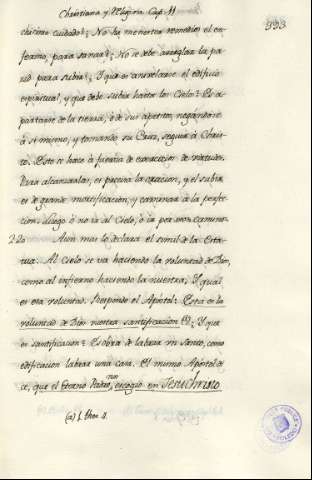 Christiana y Religiosa Cap. 11
993
chisimo cuidado?; No ha menester remedios el en-
fermo, para sanar?; No se debe arreglar la pa-
red para subir?; Y que es
espiritual, y que debe subir hasta los Cielos? Es a-
partarse de la tierra, ó de sus apetitos, negandose
á si mismo, y tomando su Cruz, seguir á Chris-
to. Esto se hace á fuerza de exercicios de virtudes.
Para alcanzarlas, es precisa la oracion, y el subir
es de grande mortificacion, y caminar á la perfec-
cion. Luego ó no ir al Cielo, ó ir por este camino.
220 Aun mas lo declara el simil de la Esta-
tua. Al Cielo se va haciendo la voluntad de Dios,
como al infierno haciendo la nuestra; Y qual
es esta voluntad? Responde el Apóstol: Esta es la
voluntad de Dios vuestra santificacion (a); Y que
es santificacion? Es obra de labrar un Santo, como
edificacion labrar una casa. El mismo Apóstol di-
ce, que el Eterno Padre nos escogió en Jesu Christo
(a) 1. Thes. 4.